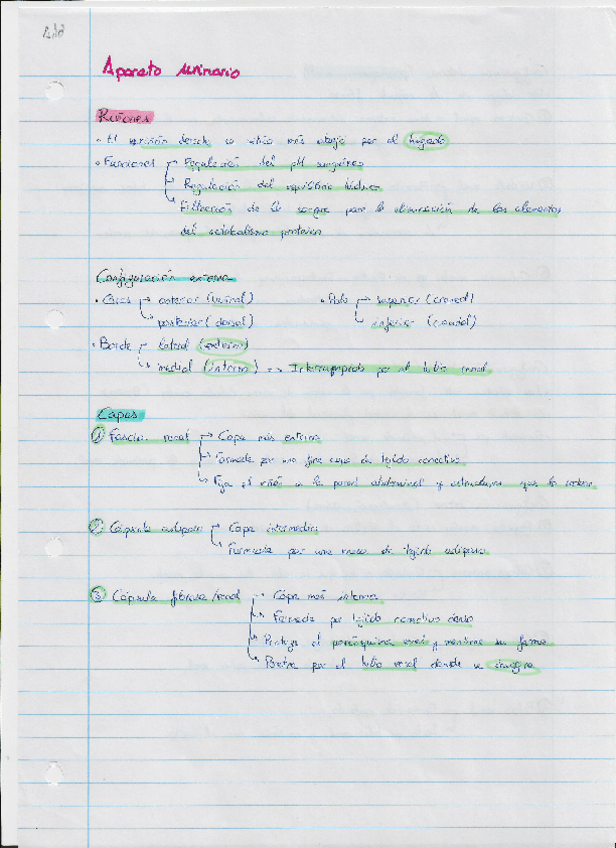 Aparato urinario
Riñones
• El riñón derecho se sitúa más abajo por el hígado
• Funciones → Regulación del pH sanguíneo
→ Regulación del equilibrio hídrico
→ Filtración de la sangre para la eliminación de los elementos
del metabolismo proteico
Configuración externa
• Caras → anterior (ventral) • Polo → superior (craneal)
→ posterior (dorsal) → inferior (caudal)
• Borde → lateral (externo)
→ medial (interno) => Interrumpido por el hilio renal
Capas
① Fascia renal → Capa más externa
→ Formada por una fina capa de tejido conectivo
→ Fija el riñón a la pared abdominal y estructuras que lo rodean
② Cápsula adiposa → Capa intermedia
→ Formada por una masa de tejido adiposo
③ Cápsula fibrosa/renal → Capa más interna
→ Formada por tejido conectivo denso
→ Protege el parénquima renal y mantiene su forma
→ Penetra por el hilio renal donde se invagina